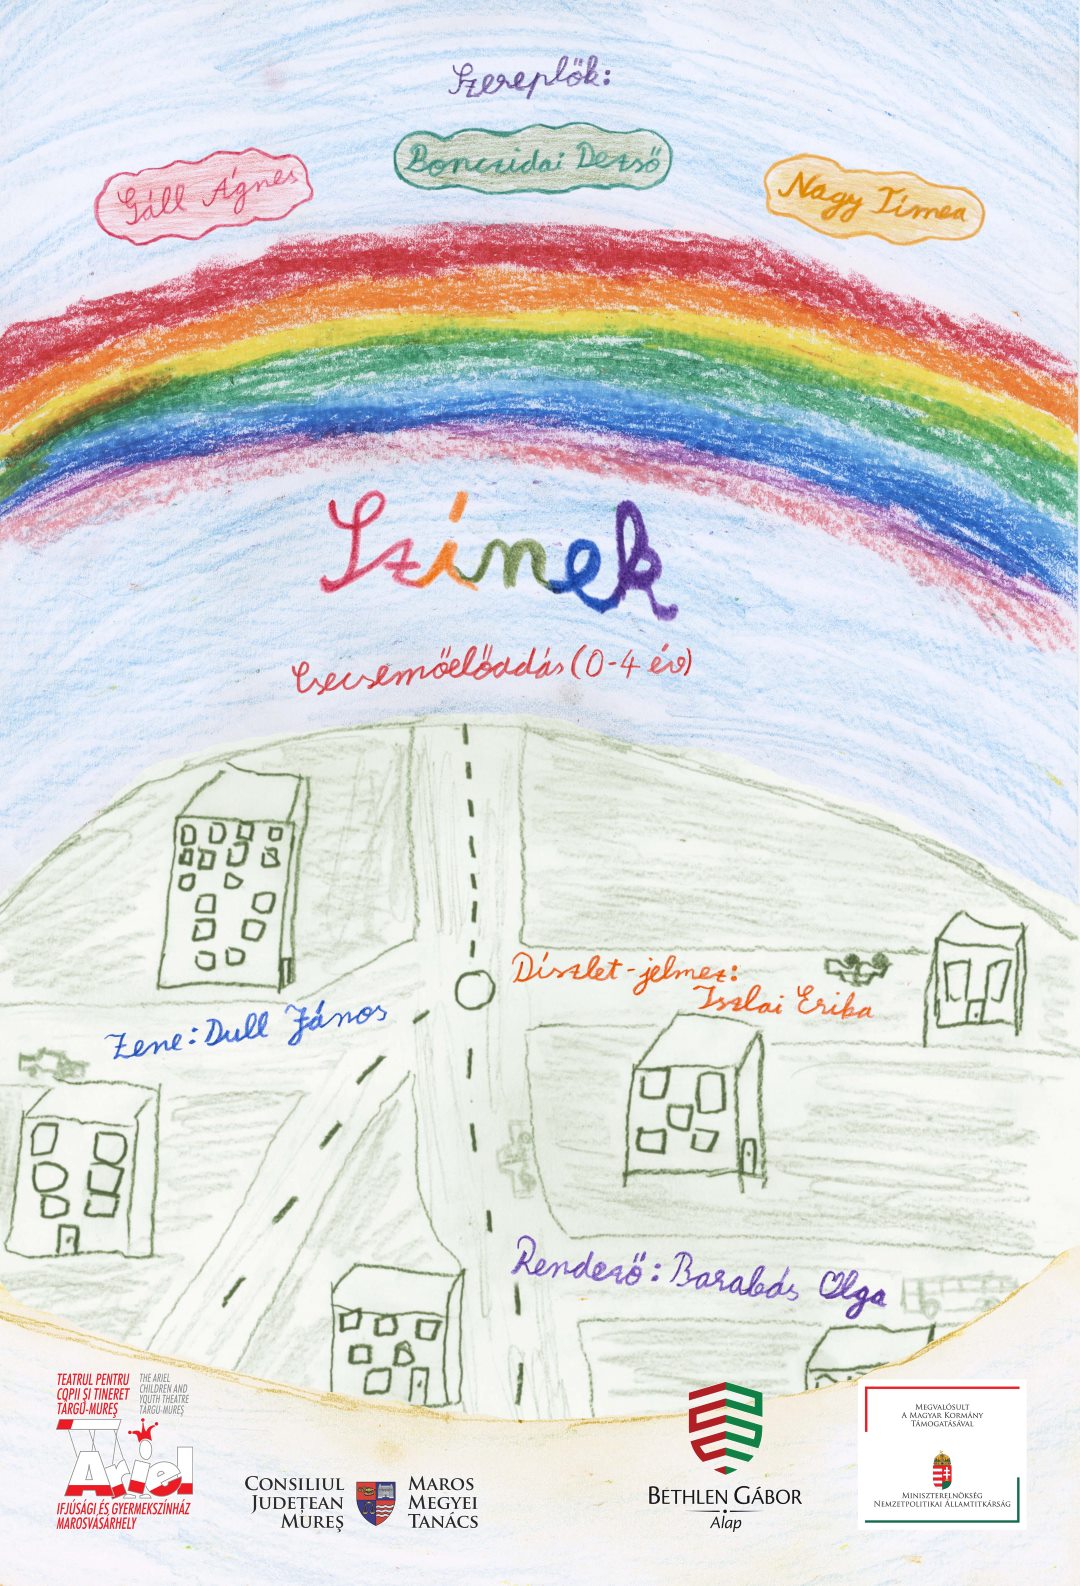 Szereplők:
Gáll Ágnes
Bonczidai Dezső
Nagy Tímea
Színek
Csecsemőelőadás (0-4 év)
Díszlet-jelmez:
Iszlai Erika
Zene: Dull János
Rendező: Barabás Olga
TEATRUL PENTRU
COPII ȘI TINERET
TÂRGU-MUREȘ
THE ARIEL
CHILDREN AND
YOUTH THEATRE
TÂRGU-MUREȘ
Ariel
IFJÚSÁGI ÉS GYERMEKSZÍNHÁZ
MAROSVÁSÁRHELY
CONSILIUL
JUDEȚEAN
MUREȘ
MAROS
MEGYEI
TANÁCS
BETHLEN GÁBOR
Alap
MEGVALÓSULT
A MAGYAR KORMÁNY
TÁMOGATÁSÁVAL
MINISZTERELNÖKSÉG
NEMZETPOLITIKAI ÁLLAMTITKÁRSÁG